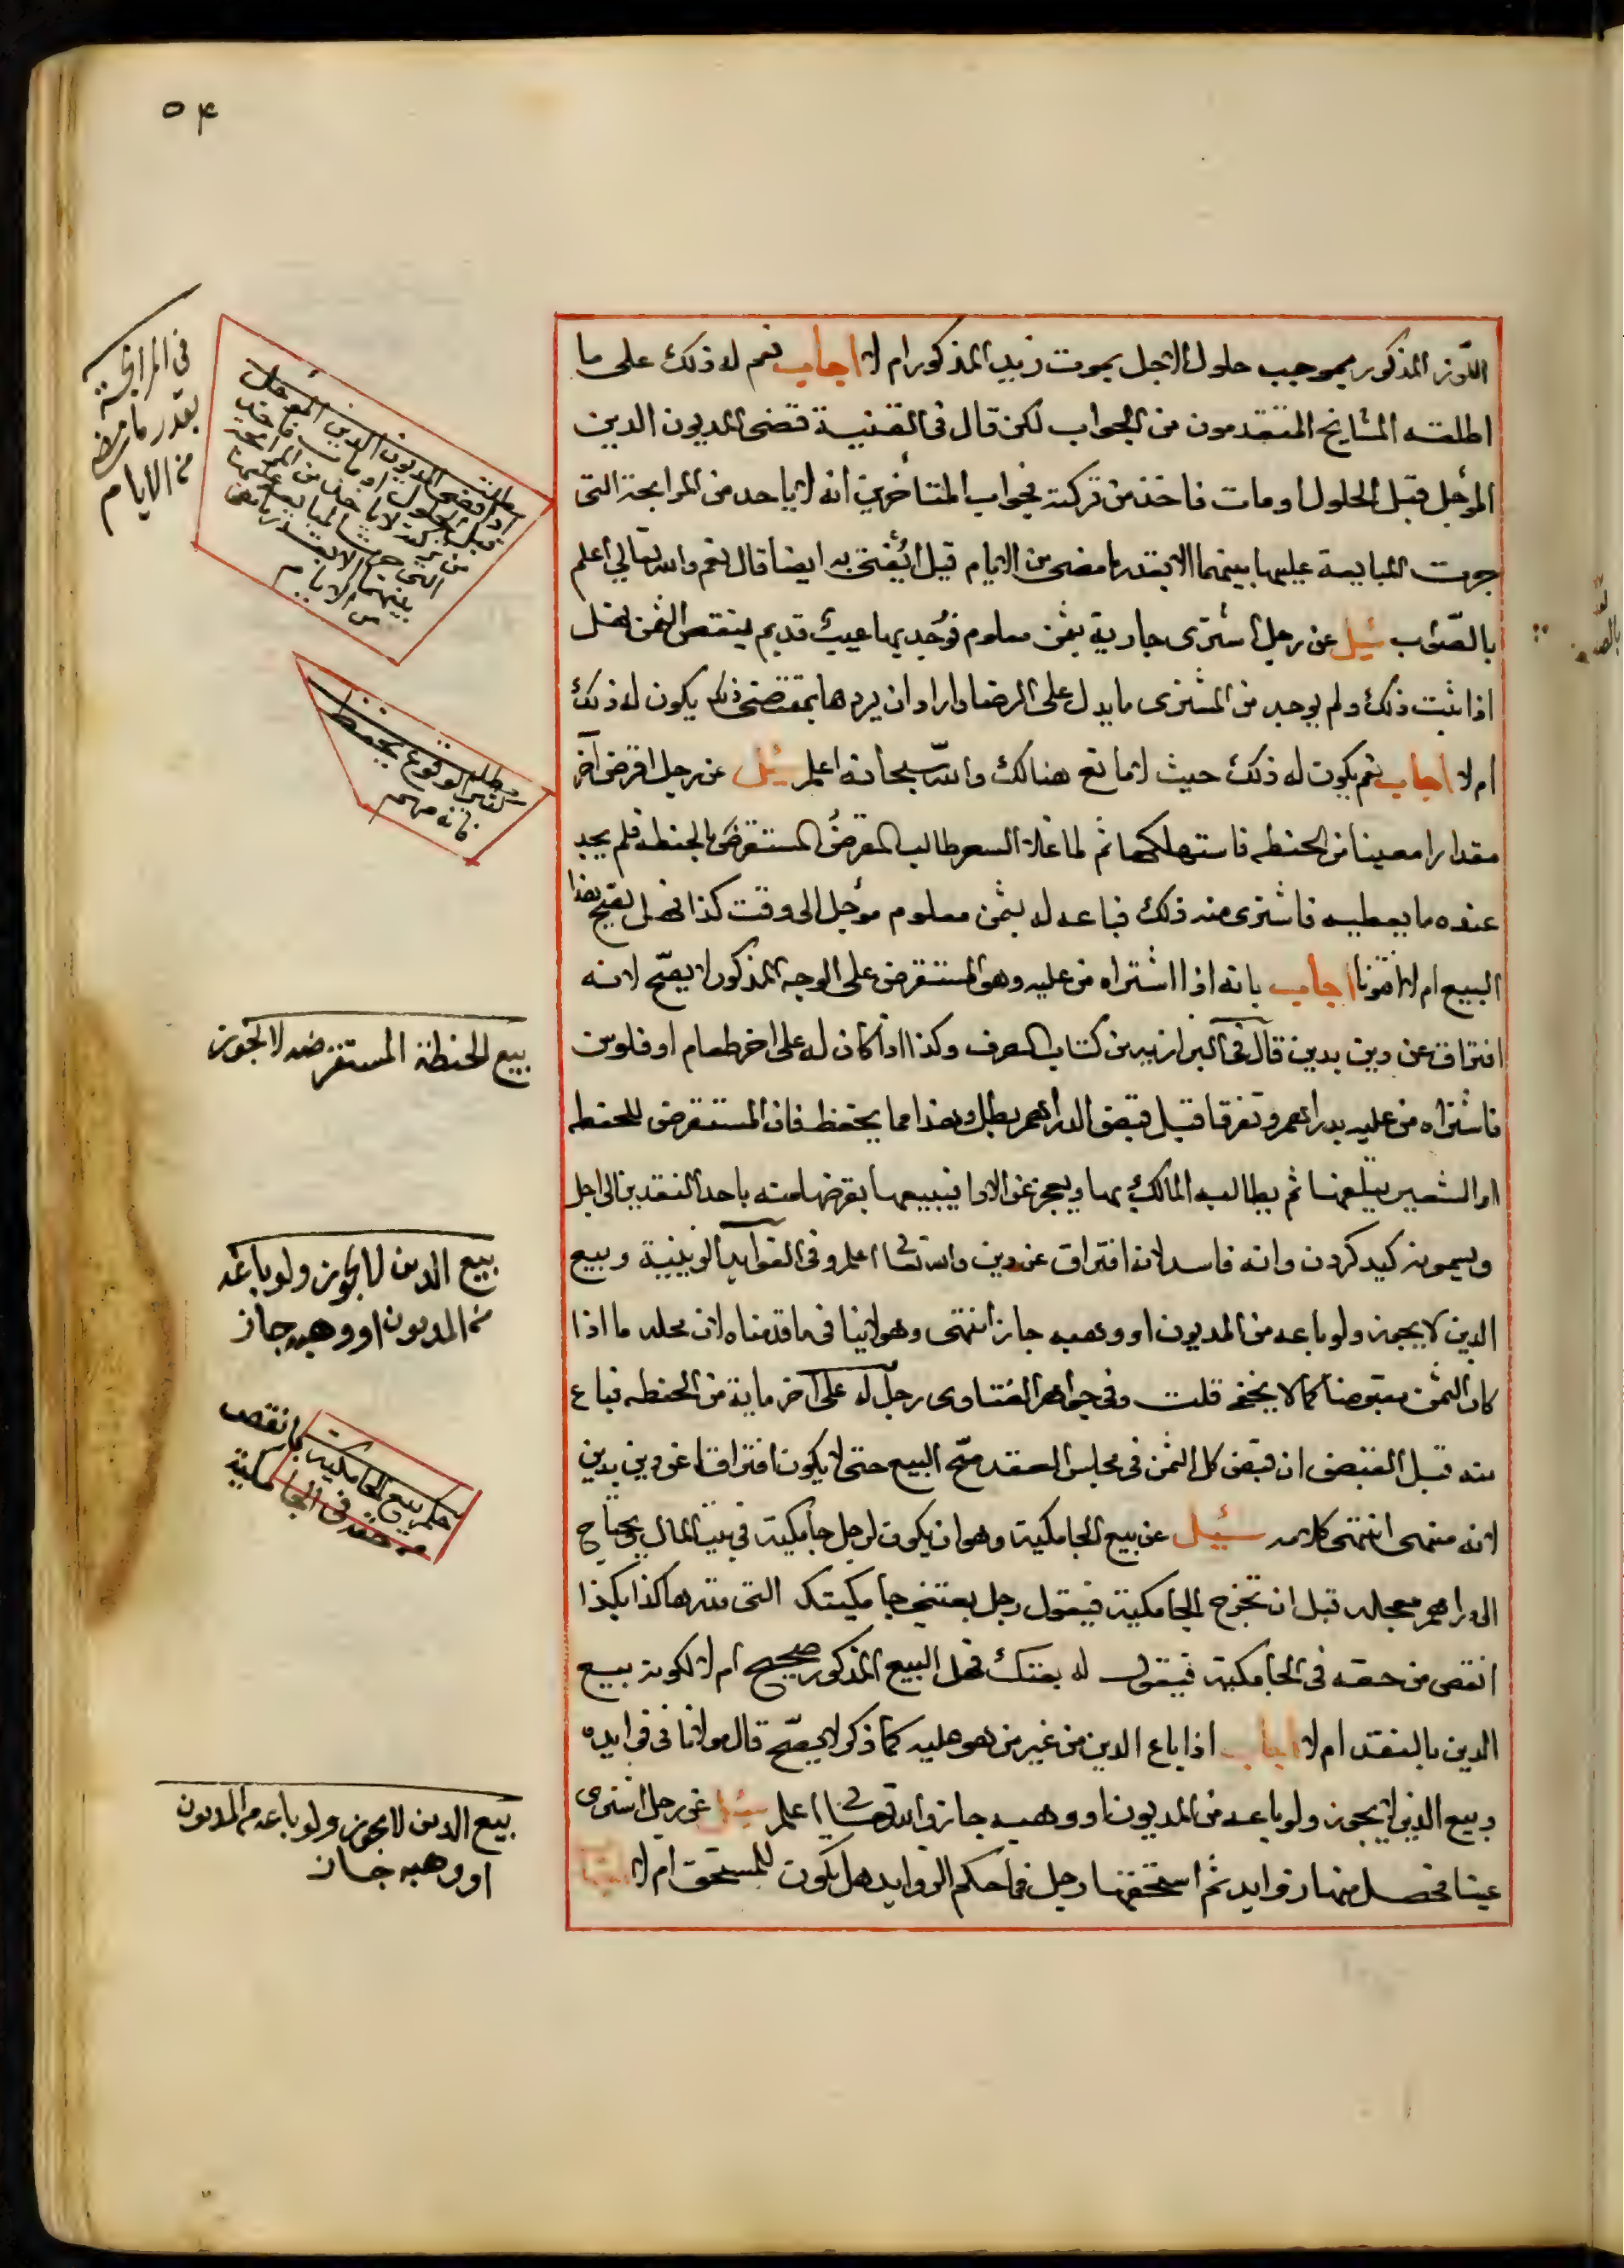 ٥٤
اللوز المذكور بموجب حلول الاجل بموت زيد المذكور ام لا اجاب نعم له ذلك على ما
اطلقه المشايخ المتقدمون من الجواب لكن قال في القنية قضى المديون الدين
المؤجل قبل الحلول او مات فاخذ من تركته فجواب المتأخرين انه لا ياخذ من المرابحة التي
جرت المبايعة عليها بينهما الا بقدر ما مضى من الايام قيل أتفتي به ايضا قال نعم والله تعالي اعلم
بالصّواب سُيل عن رجل اشترى جارية بثمن معلوم فوُجد بها عيب قديم ينقص الثمن فهل
اذا ثبت ذلك ولم يوجد من المشترى ما يدل على الرضا واراد ان يردها بمقتضى ذلك يكون له ذلك
ام لا اجاب نعم يكون له ذلك حيث لا مانع هنالك والله سبحانه اعلم سُيل عن رجل اقرض آخر
مقدارا معينا من الحنطه فاستهلكها ثم لما غلا السعر طالب المقرضُ المستقرضَ بالحنطه فلم يجد
عنده ما يعطيه فاشترى منه ذلك فباعه له بثمن معلوم مؤجل الى وقت كذا فهل يصح هذا
البيع ام لا افتونا اجاب بانه اذا اشتراه من عليه وهو المستقرض على الوجه المذكور لا يصحّ لانه
افتراق عن دين بدين قال في البزازيه من كتاب الصرف وكذا اذا كان له على اخر طعام او فلوس
فاشتراه من عليه بدراهم وتفرقا قبل قبض الدراهم بطل وهذا مما يحفظ فان المستقرض للحنطه
او الشعير يتلفها ثم يطالبه المالك بها ويعجز عن الادا فيبيعها بقرضها منه باحد النقدين الى اجل
ويسمونه كيد كردن وانه فاسد لانه افتراق عن دين والله تعالى اعلم وفي الفوايد الزينية وبيع
الدين لا يجوز ولو باعه من المديون او وهبه جاز انتهى وهو لا ينافي ما قدمناه لان محله ما اذا
كان الثمن مقبوضا كما لا يخفى قلت وفي جواهر الفتاوى رجل له على آخر ماية من الحنطه فباع
منه قبل القبض ان قبض كل الثمن في مجلس العقد صحّ البيع حتى لا يكون افتراقا عن دين بدين
لانه منهى انتهى كلامه سُيل عن بيع الجامكية وهو ان يكون لرجل جامكية في بيت المال ويحتاج
الى دراهم معجله قبل ان تخرج الجامكية فيقول رجل بعتني جامكيتك التي قدرها كذا بكذا
انقص من حقه في الجامكية فيقول له بعتك فهل البيع المذكور صحيح ام لا لكونه بيع
الدين بالنقد ام لا اجاب اذا باع الدين من غير من هو عليه كما ذكر لا يصحّ قال مولانا في فوايده
وبيع الدين لا يجوز ولو باعه من المديون او وهبه جاز والله تعالى اعلم سُيل عن رجل اشترى
عينا فحصل منها زوايد ثم استحقها رجل فما حكم الزوايد هل يكون للمستحق ام لا
في المرابحة
بقدر ما مضى
من الايام
مطلب
اذا قضى المديون الدين المؤجل
قبل الحلول او مات فاخذ
من تركته لا ياخذ من المرابحة
التي جرت المبايعة عليها
بينهما الا بقدر ما مضى
من الايام
مطلب
كثير الوقوع يحفظ
فانه مهم
بيع الحنطة المستقرضه لا يجوز
بيع الدين لا يجوز ولو باعه
من المديون او وهبه جاز
حكم بيع الجامكية بانقص
من حقه في الجامكية
بيع الدين لا يجوز ولو باعه من المديون
او وهبه جاز